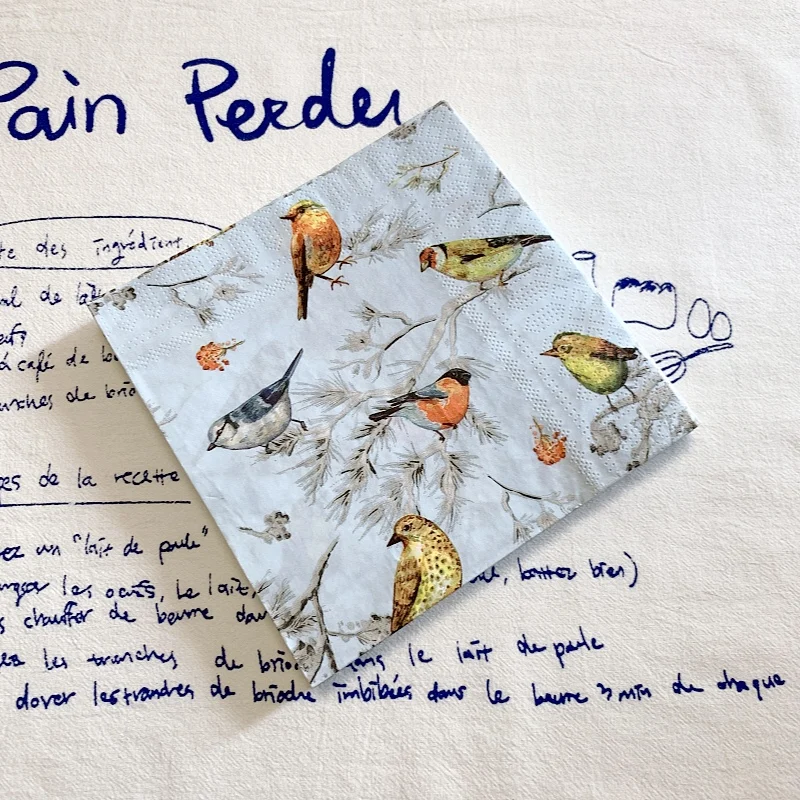 Pain Perdu
te des ingrédient
ml de lait
œufs
à café de
anches de brio
pes de la recette
ez un "lait de poule"
anger les œufs, le lait, battez bien)
s chauffer de beurre dan
les tranches de brio dans le lait de poule
dorer les tranches de brioche imbibées dans le beurre 3 min de chaque